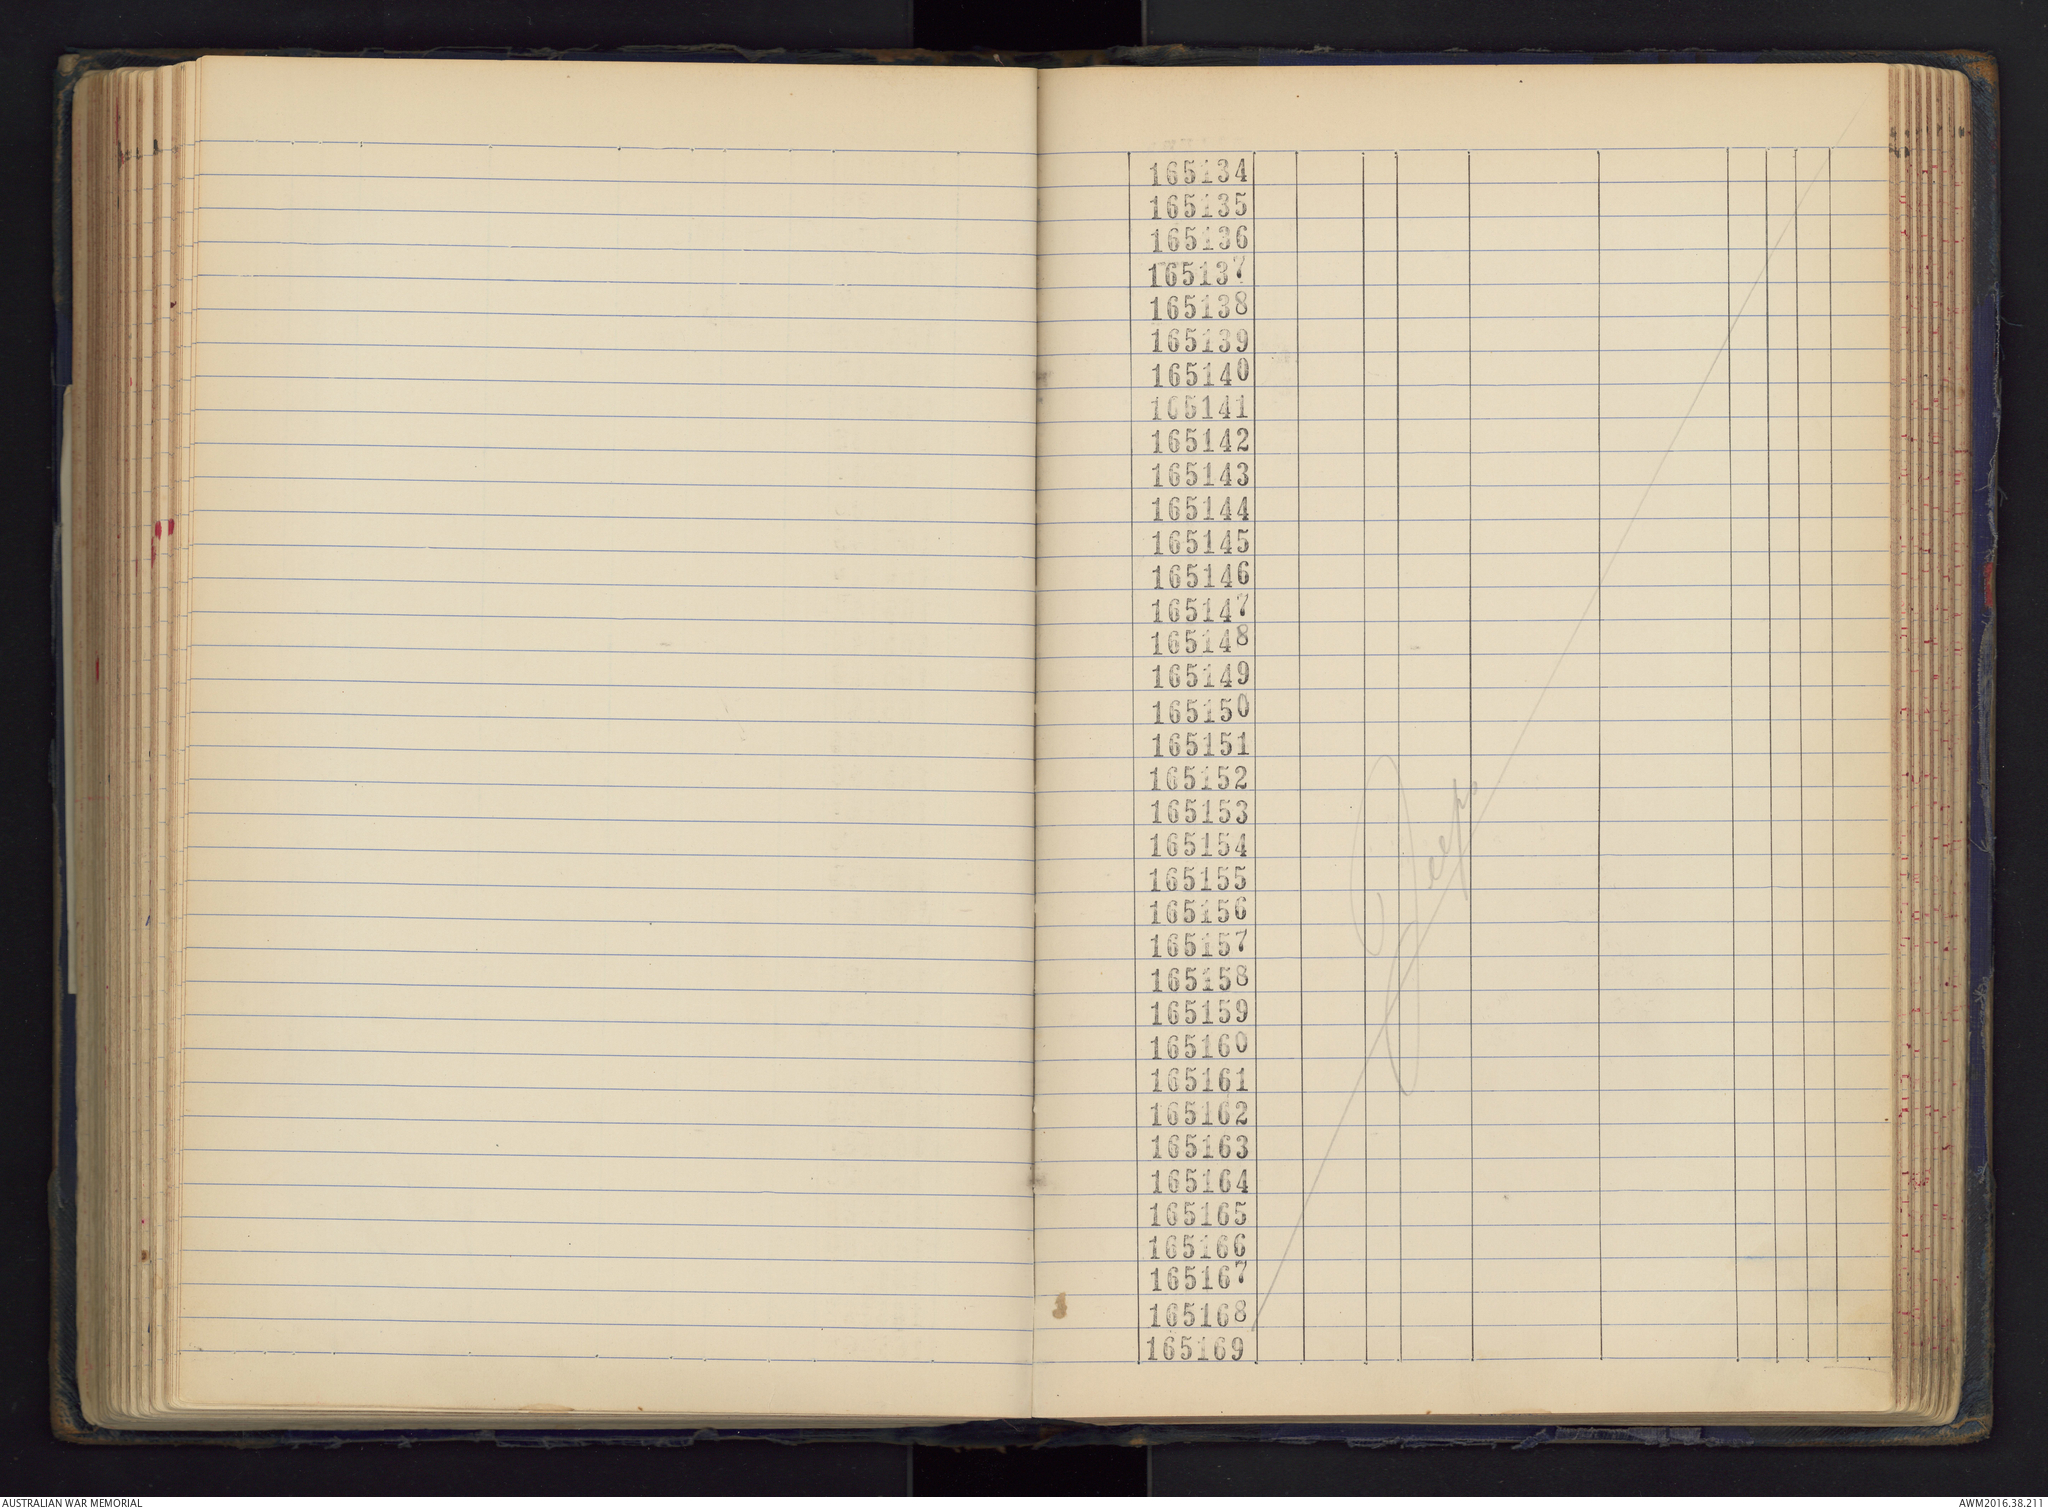 165134
165135
165136
165137
165138
165139
165140
165141
165142
165143
165144
165145
165146
165147
165148
165149
165150
165151
165152
165153
165154
165155
165156
165157
165158
165159
165160
165161
165162
165163
165164
165165
165166
165167
165168
165169
Jeeps
AUSTRALIAN WAR MEMORIAL
AWM2016.38.211